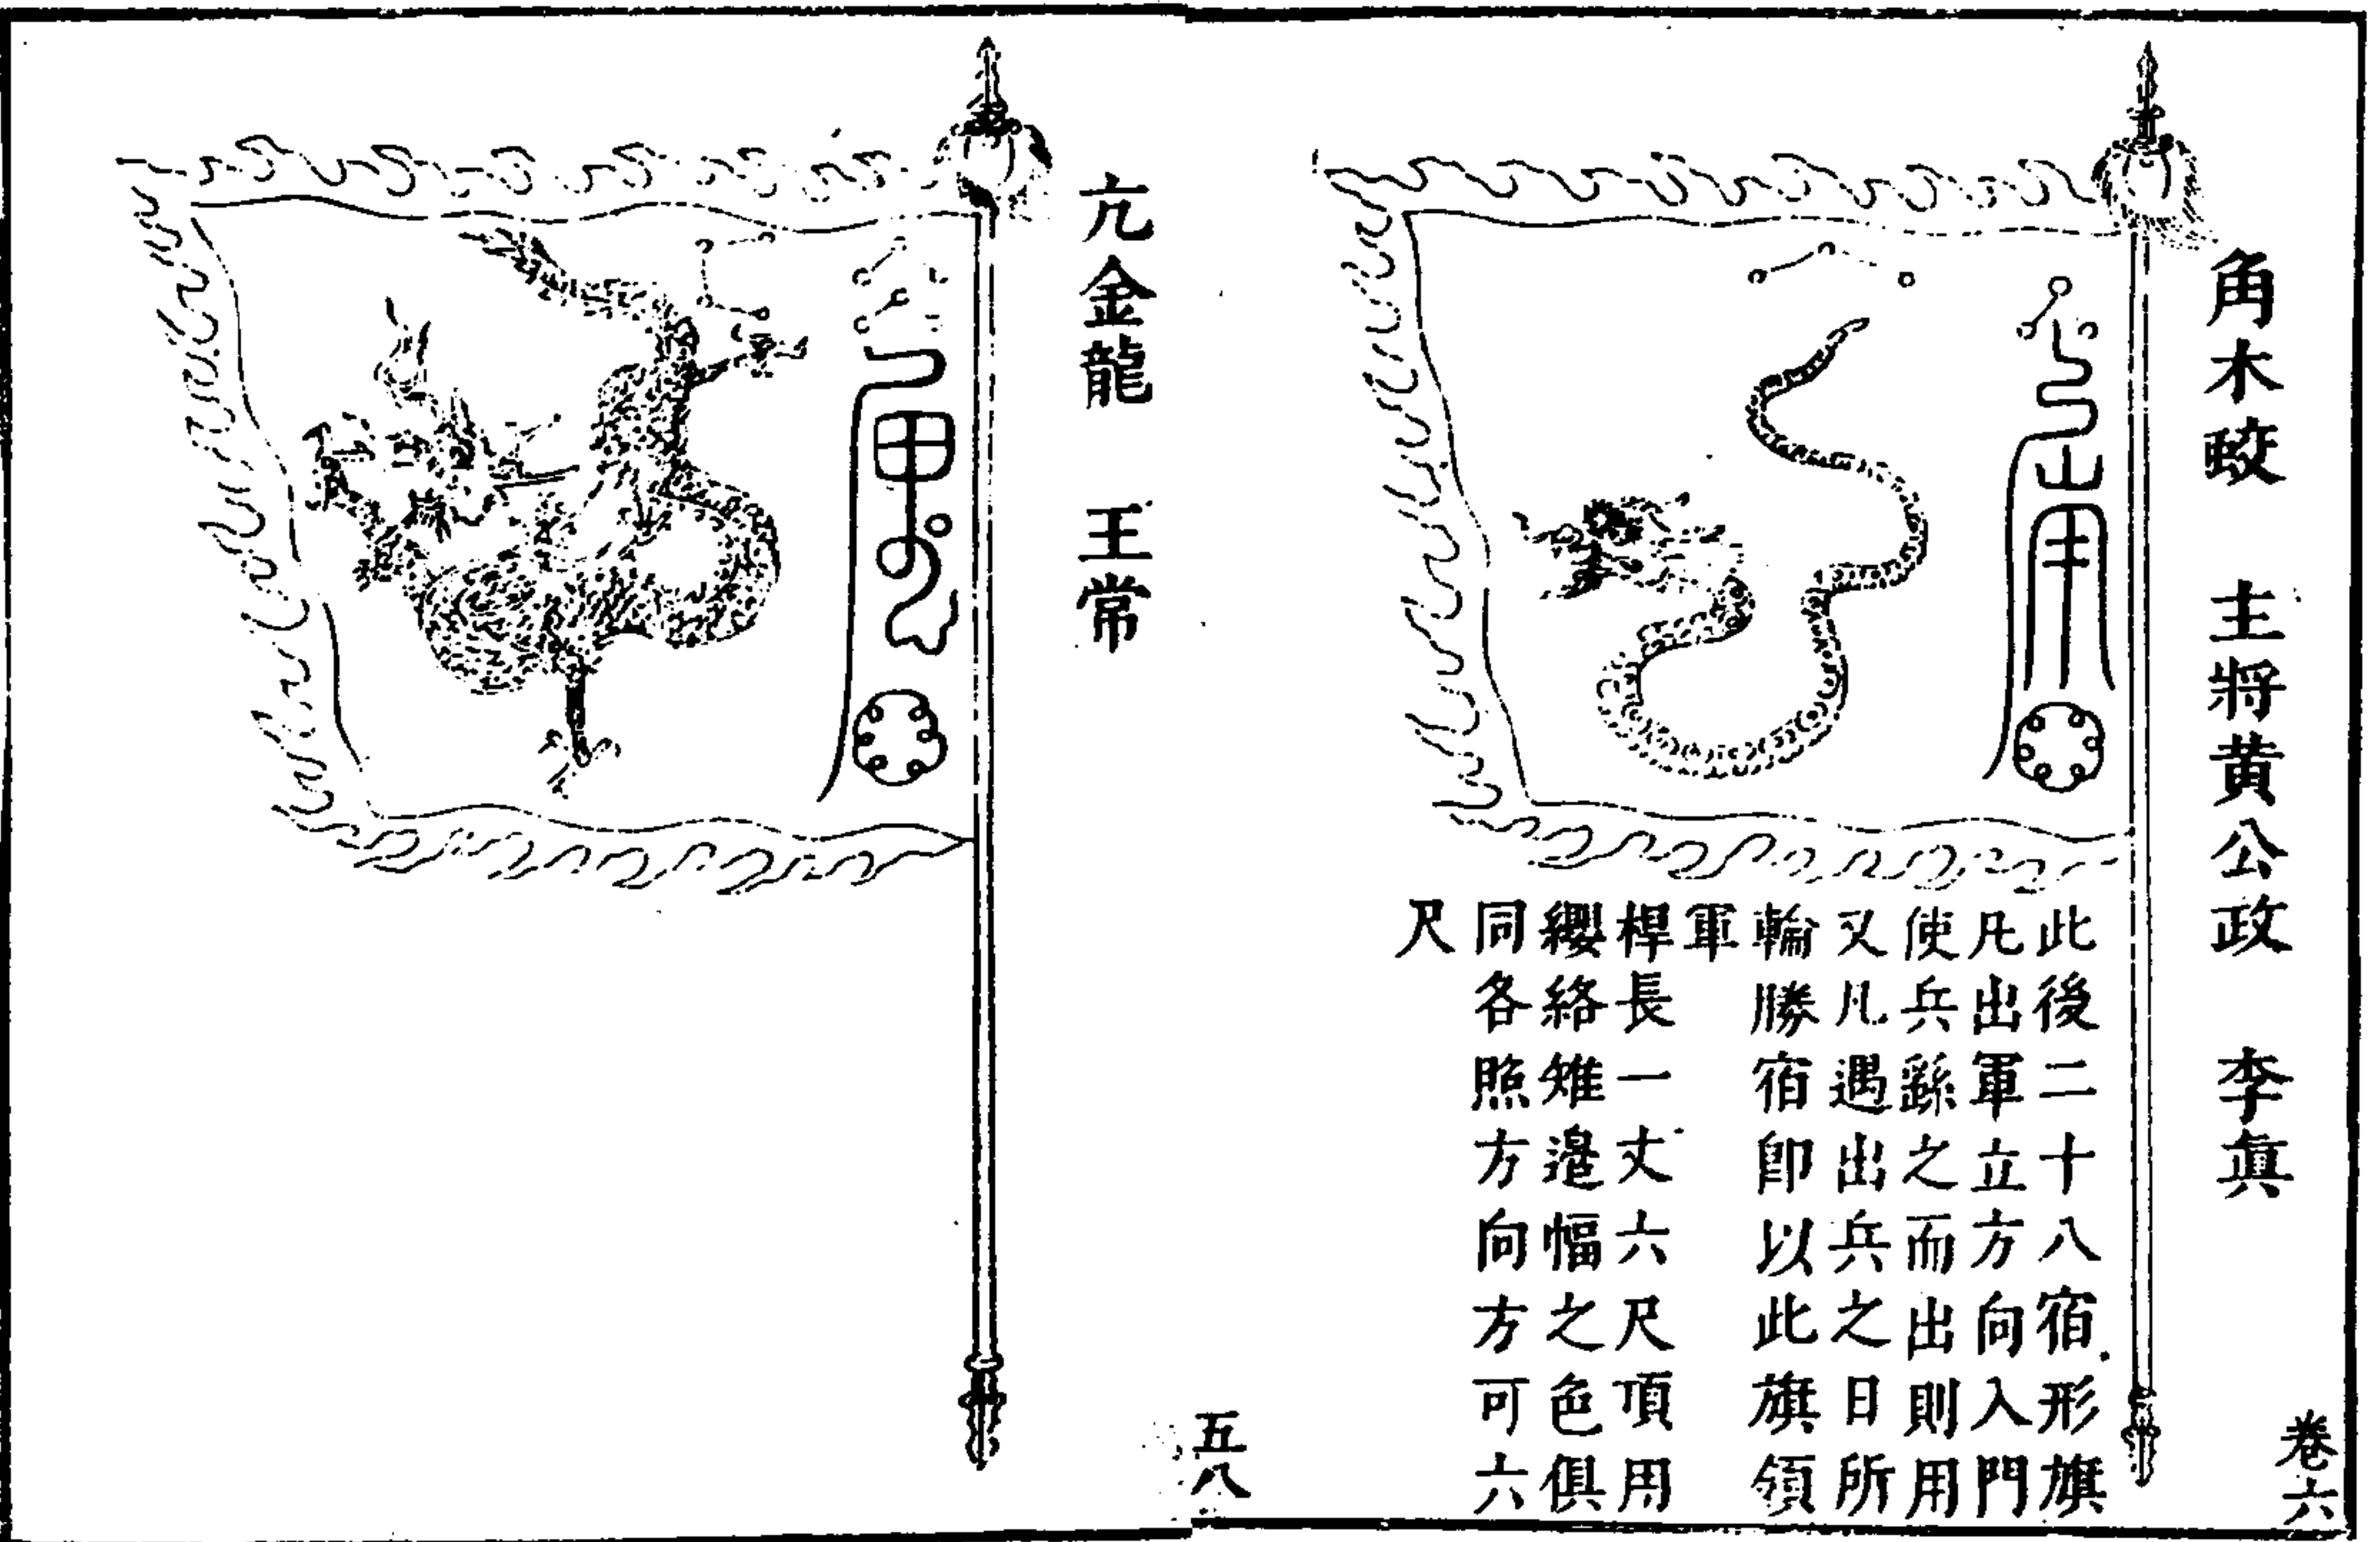 卷六
角木蛟 主將黃公政 李眞
此後二十八宿形旗
凡出軍立方向入門
使兵繇之而出則用
又凡遇出兵之日所
輪勝宿卽以此旗領
軍
桿長一丈六尺頂用
纓絡雉邉幅之色俱
同各照方向方可六
尺
五八
亢金龍 王常